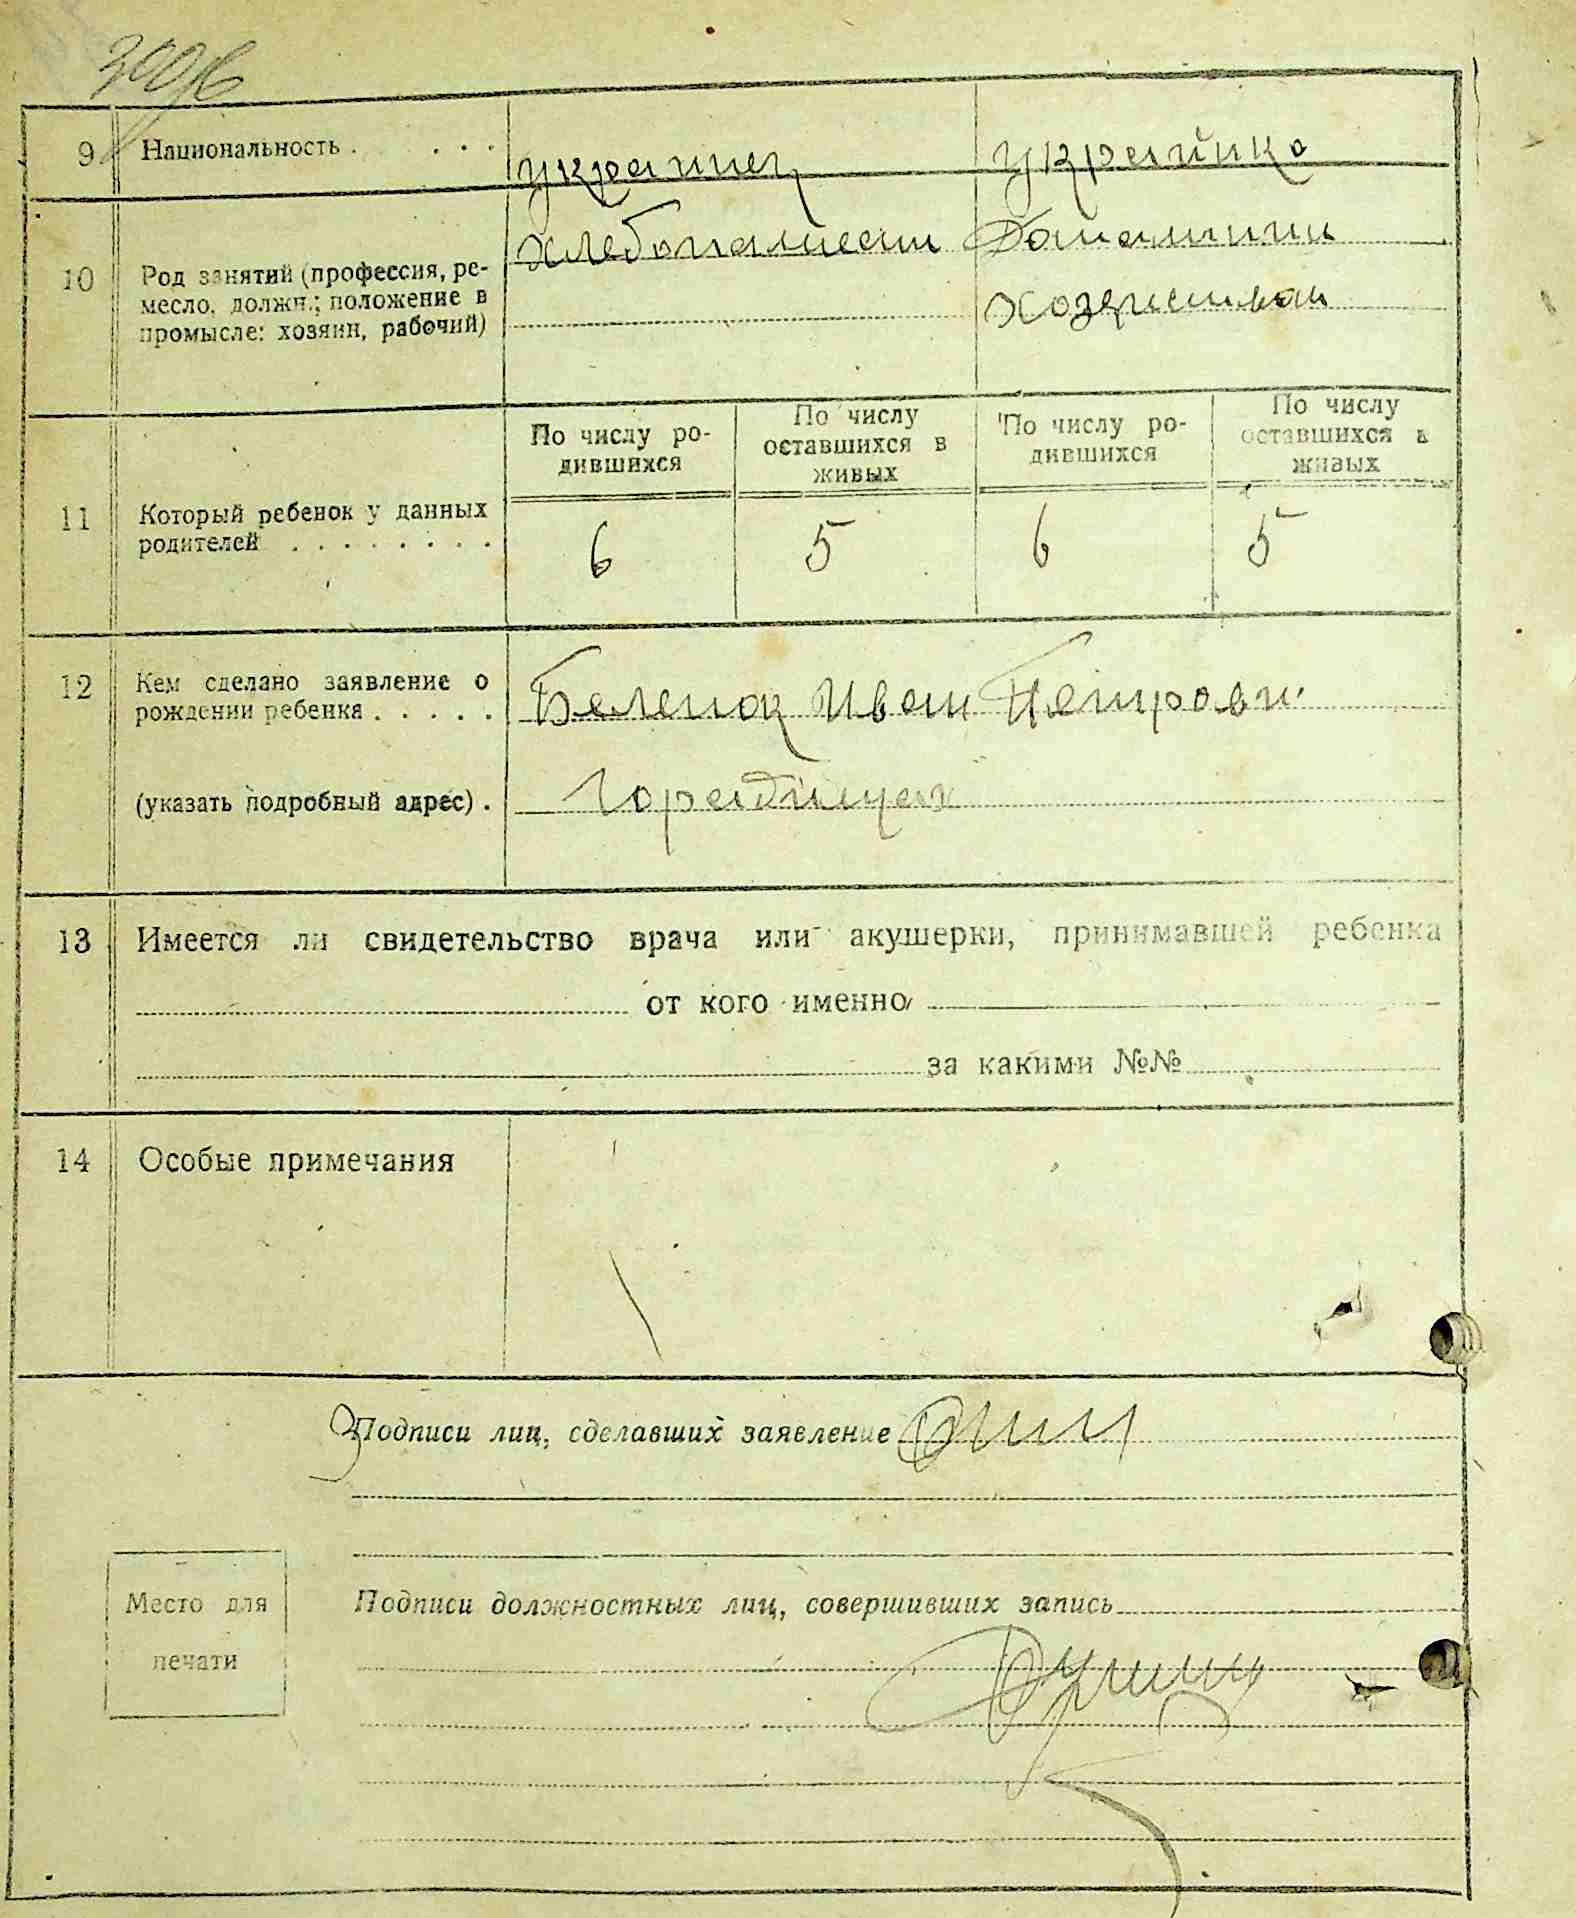 9 Национальность . . . . украинец украинка
10 Род занятий (профессия, ре-
месло, должн.; положение в
промысле: хозяин, рабочий)
хлебопашест Домашни
хозяйством
По числу ро-
дившихся
По числу
оставшихся в
живых
По числу ро-
дившихся
По числу
оставшихся в
живых
11 Который ребенок у данных
родителей . . . . . . . .
6 5 6 5
12 Кем сделано заявление о
рождении ребенка . . . . .
Беленок Иван Петрови
(указать подробный адрес) .
13 Имеется ли свидетельство врача или акушерки, принимавшей ребенка
от кого именно
за какими №№
14 Особые примечания
Подписи лиц, сделавших заявление
Место для
печати
Подписи должностных лиц, совершивших запись